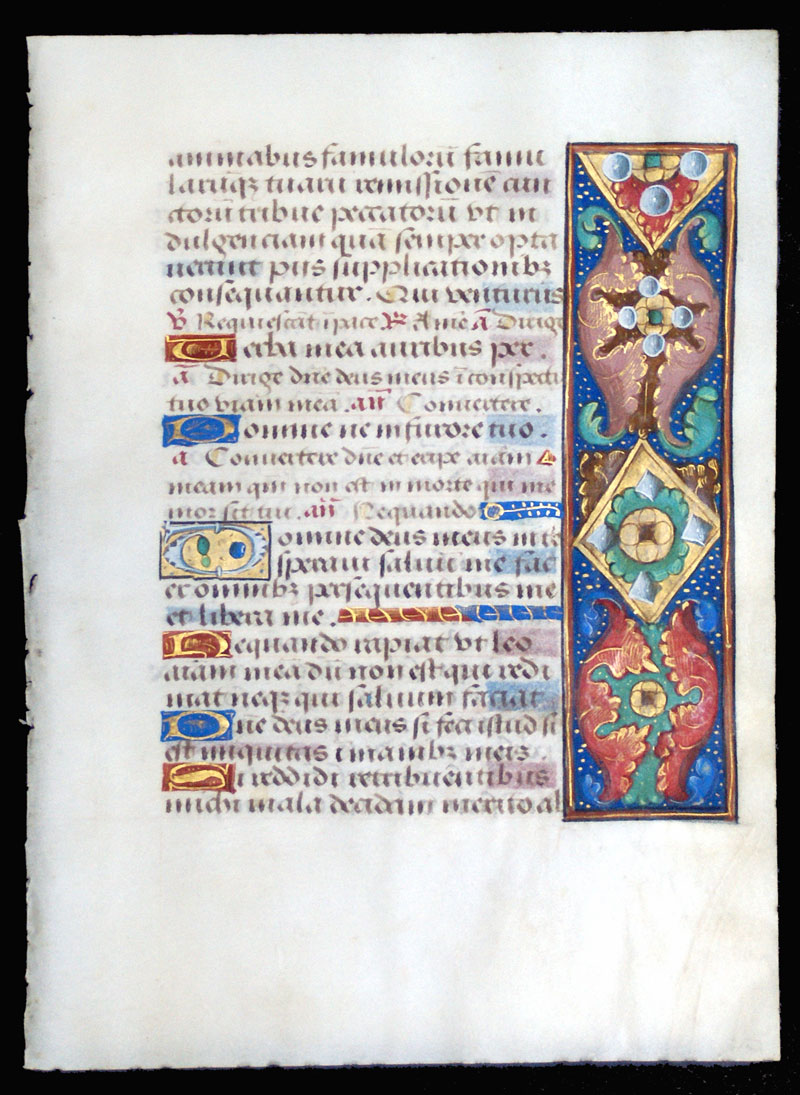 animabus famulorū famu
larūqꝫ tuarū remissionē cun
ctorū tribue peccatorū vt in
dulgenciam quā semper opta
uerunt piis supplicationibꝫ
consequantur. Qui venturus
℣ Requiescāt ī pace ℟ Amē ā Dirige
Uerba mea auribus per.
ā Dirige dn̄e deus meus ī conspectu
tuo viam meā. an̄ Conuertere.
Domine ne in furore tuo.
a Conuertere dn̄e et eripe aīam
meam qm̄ non est in morte qui me
mor sit tui. an̄ Nequando
Domine deus meus in te
speraui saluū me fac
ex omnibꝫ persequentibus me
et libera me.
Nequando rapiat vt leo
aīam meā dū non est qui redi
mat neqꝫ qui saluum faciat
Dn̄e deus meus si feci istud si
est iniquitas ī manibꝫ meis
Si reddidi retribuentibus
michi mala decidam merito ab